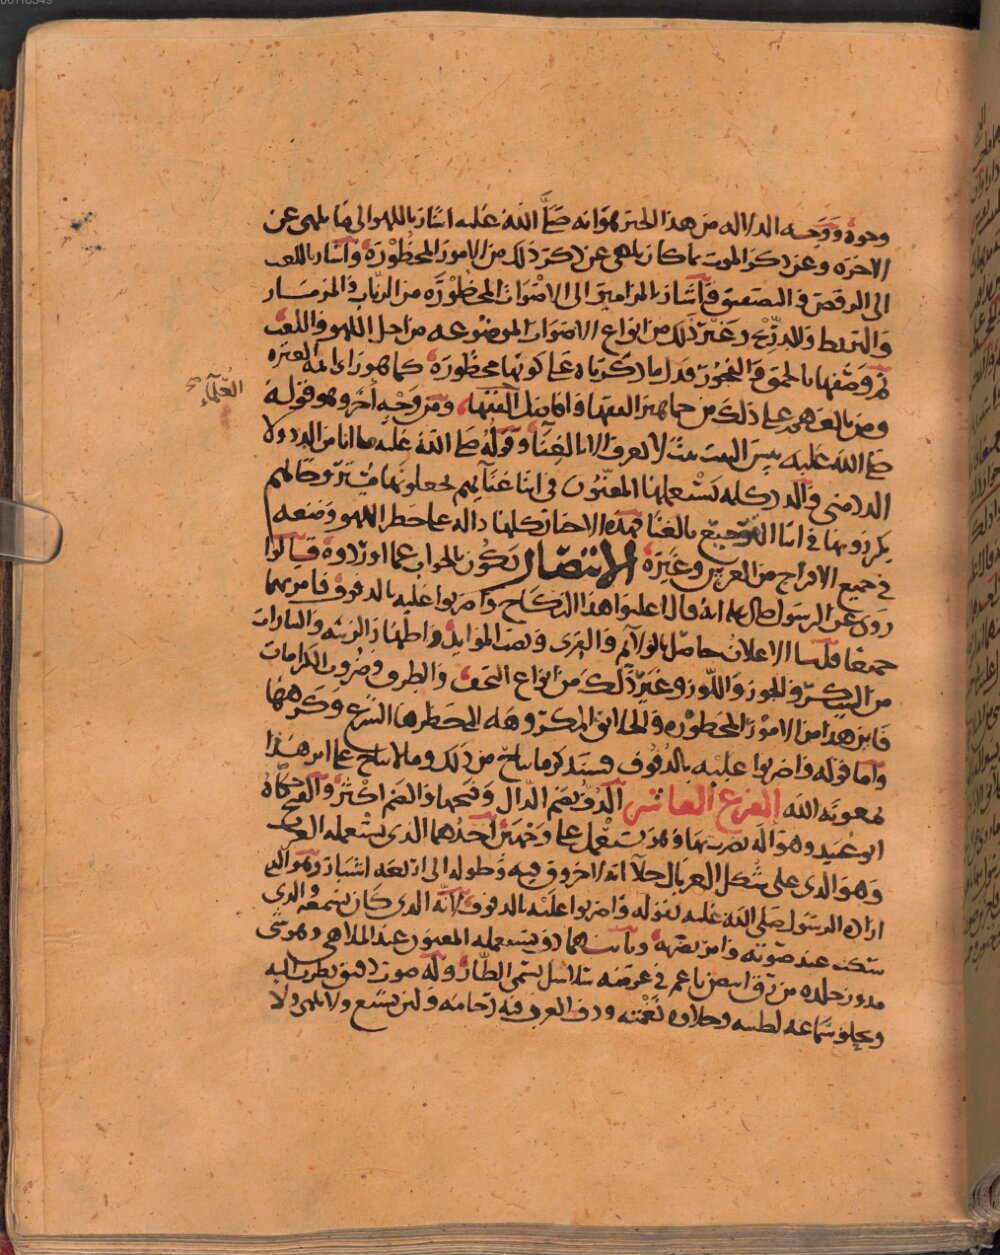 00118349
وجوه ووجه الدلاله من هذا الخبر هو انه صلى الله عليه اشار باللهو الى ما يلهى عن
الاخره وعن ذكر الموت بما كان يلهى عن ذكر ذلك من الامور المحظورة واشار باللعب
الى الرقص والتصفيق واشار بالمزامير الى الاصوات المحظوره من الرباب والمزمار
والبربط وغير ذلك من انواع الاصوات الموضوعه من اجل اللهو واللعب
ثم وصفهما بالحمق والفجور فدل ما ذكرناه على كونها محظورة كما هو راى ائمه العتره
ومن تابعهم على ذلك من جماهير الفقها وافاضل الفقهاء ومن وجه آخر وهو قوله
العلماء
صلى الله عليه بيس البيت بيت لا يعرف الا بالغنآ وقوله صلى الله عليه ما انا من الدد ولا
الدد منى والدد كلمه يستعملها المغنون فى اثنا غنآيهم يجعلونها
يكررونها فى اثنا الترجيع بالغنا فهذه الاخبار كلها داله على حظر اللهو ومنعه
فى جميع الافراح من العرس وغيره الانتصار يكون بالجواب عما اوردوه قالوا
روى عن الرسول صلى الله عليه انه قال اعلنوا هذا النكاح واضربوا عليه بالدفوف فامر بهما
جميعا قلنا الاعلان حاصل بالولائم والقرى ونصب الموايد واظهار الزينه والنثارات
من السكر والجوز واللوز وغير ذلك من انواع التحف والطرف وضروب الكرامات
فاين هذا من الامور المحظوره والملاهى المكروهه التى حظرها الشرع وكرهها
واما قوله واضربوا عليه بالدفوف فسنذكر ما يباح من ذلك وما لا يباح على اثر هذا
بمعونه الله الفرع العاشر الدف بضم الدال وفتحها والضم اكثر والفتح حكاه
ابو عبيد وهو آله يضرب بها وقد يستعمل على وجهين احدهما الذى يستعمله العرب
وهو الذى على شكل الغربال خلا انه لا خروق فيه وطوله الى اربعه اشبار وهو الذى
اراده الرسول صلى الله عليه بقوله واضربوا عليه بالدفوف لانه الذى كان يسمعه والذى
سكت عند صوته وامر بضربه وثانيهما دف يستعمله المغنون عند الملاهى وهو شى
مدور جلده من رق ابيض ناعم فى عرضه سلاسل يسمى الطار وله صوت رقيق يطرب اليه
ويحلو سماعه لطيبه وحلاوه نغمته ودف العرب فيه فخامه وليس يشبع ولا يلهى ولا